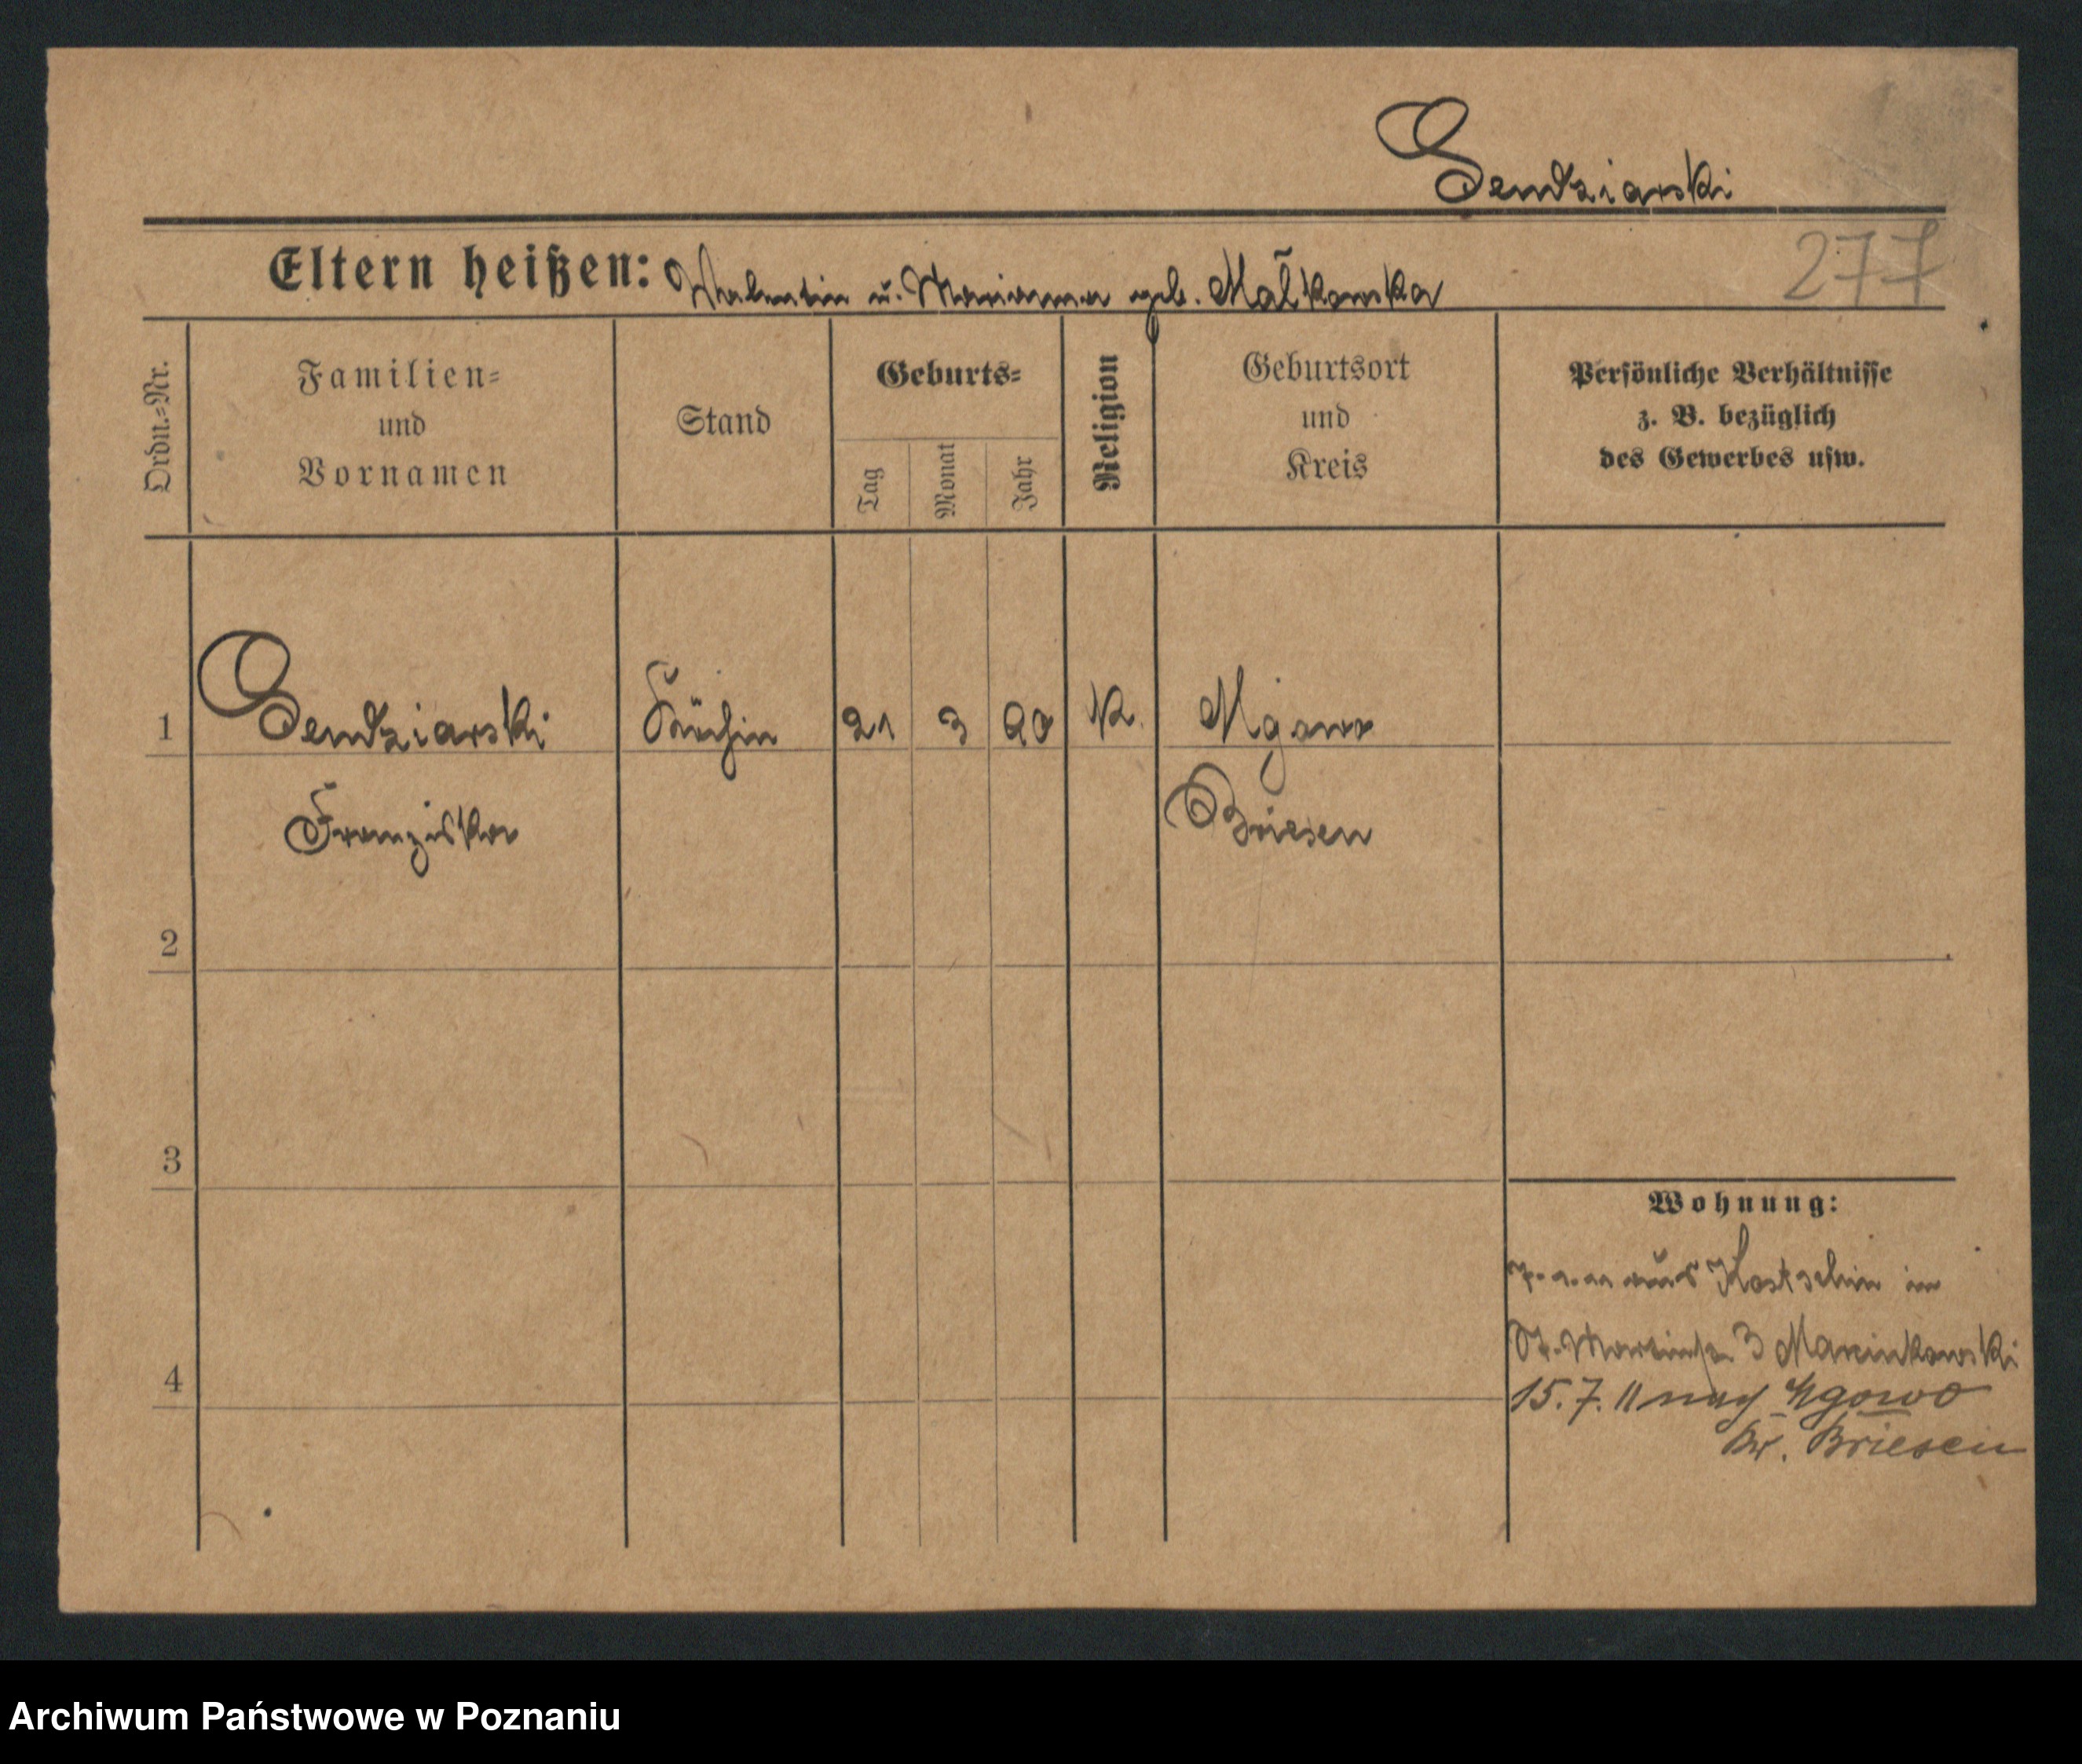 Gendziarski
Eltern heißen: Valentin u. Marianna geb. Małkowska
277
Ordn.=Nr.
Familien=
und
Vornamen
Stand
Geburts=
Tag
Monat
Jahr
Religion
Geburtsort
und
Kreis
Persönliche Verhältnisse
z. B. bezüglich
des Gewerbes usw.
1 Gendziarski Köchin 21 3 90 K. Mgowo
Franziska Briesen
2
3
4
Wohnung:
aus Kostschin in
St. Martinstr. 3 Marcinkowski
15.7.11 nach Mgowo
Kr. Briesen
Archiwum Państwowe w Poznaniu